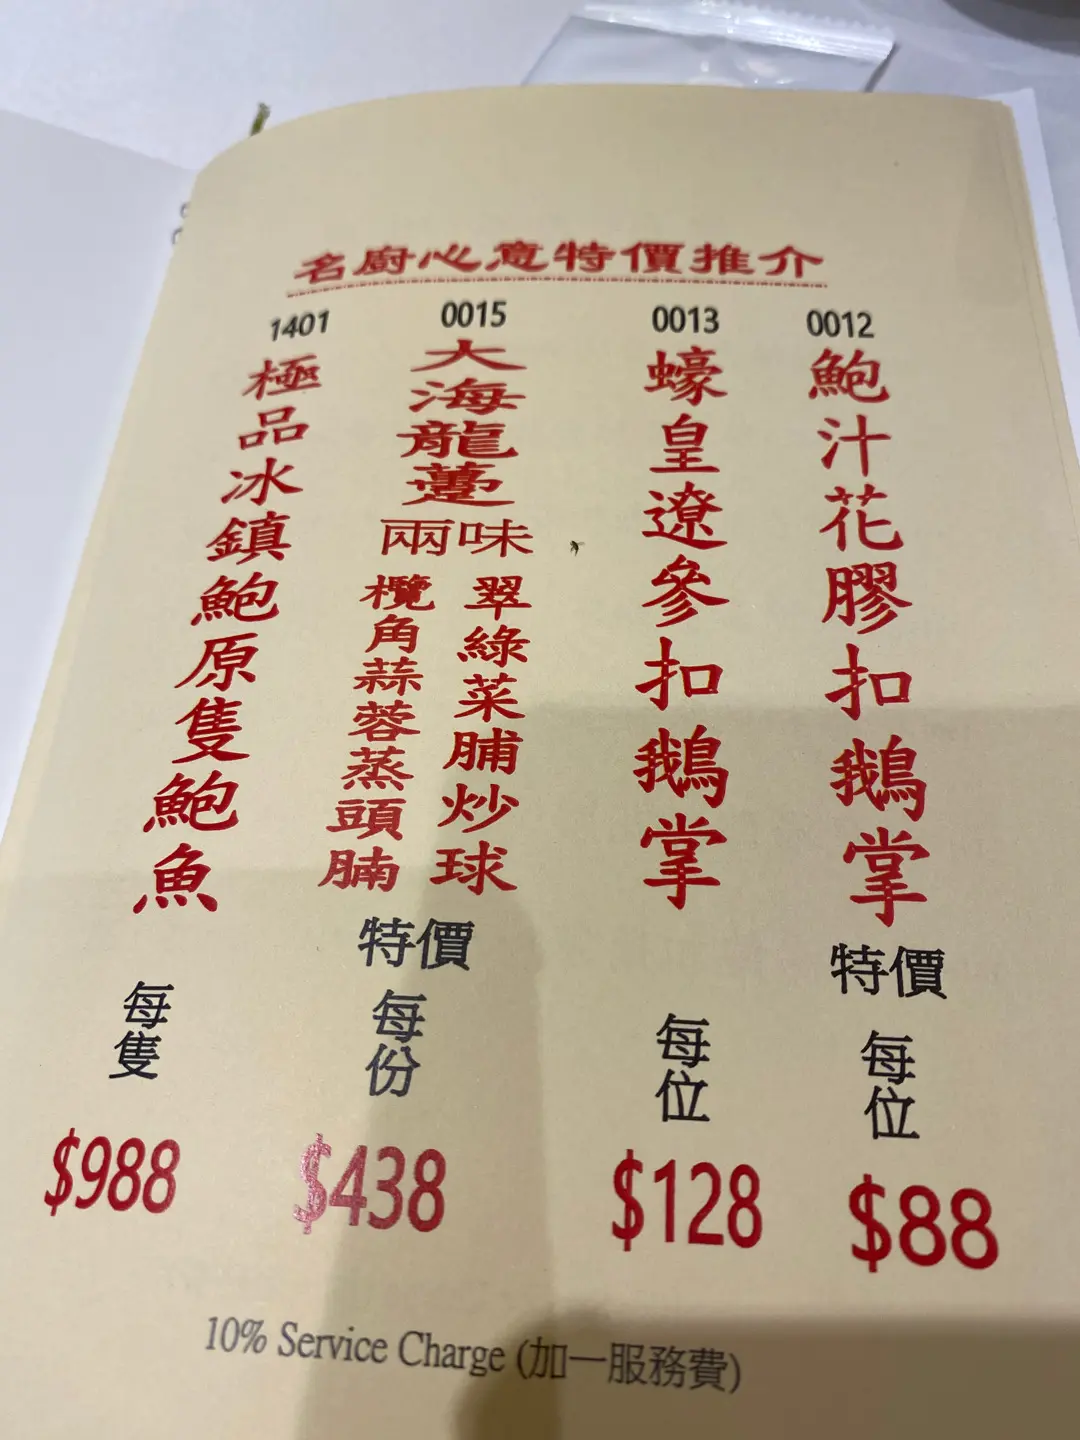 名廚心意特價推介
0012
鮑汁花膠扣鵝掌
特價
每位
$88
0013
蠔皇遼參扣鵝掌
每位
$128
0015
大海龍躉
兩味
翠綠菜脯炒球
欖角蒜蓉蒸頭腩
特價
每份
$438
1401
極品冰鎮鮑原隻鮑魚
每隻
$988
10% Service Charge (加一服務費)